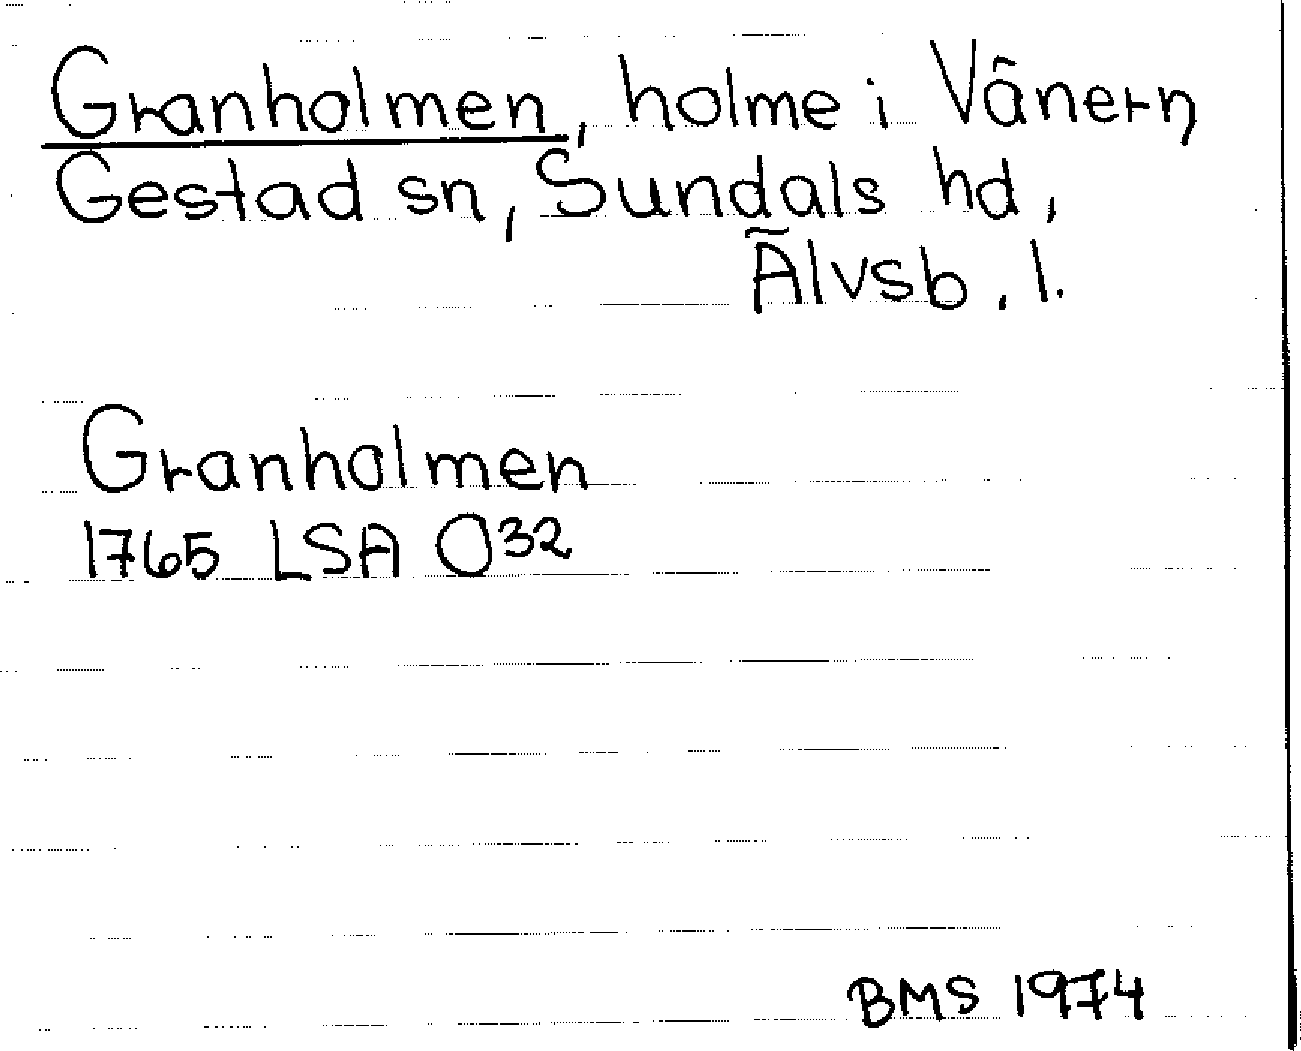 Granholmen, holme i Vänern
Gestad sn, Sundals hd,
Älvsb. l.
Granholmen
1765 LSA O32
BMS 1974